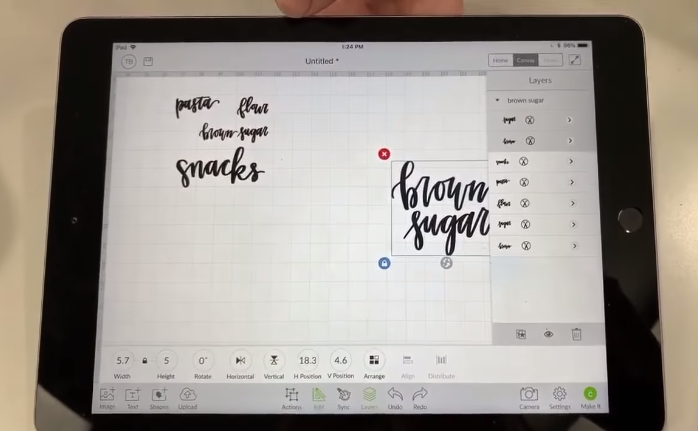 iPad
1:24 PM
96%
TB
Untitled *
Home
Canvas
Layers
pasta
flour
brown sugar
snacks
brown
sugar
brown sugar
sugar
brown
snacks
pasta
flour
sugar
brown
5.7
5
0°
18.3
4.6
Width
Height
Rotate
Horizontal
Vertical
H Position
V Position
Arrange
Align
Distribute
Image
Text
Shapes
Upload
Actions
Edit
Sync
Layers
Undo
Redo
Camera
Settings
Make It